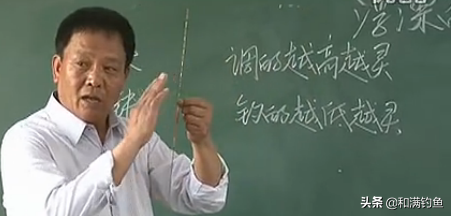 浮深
调的越高越灵
钓的越低越灵
头条 @和满钓鱼